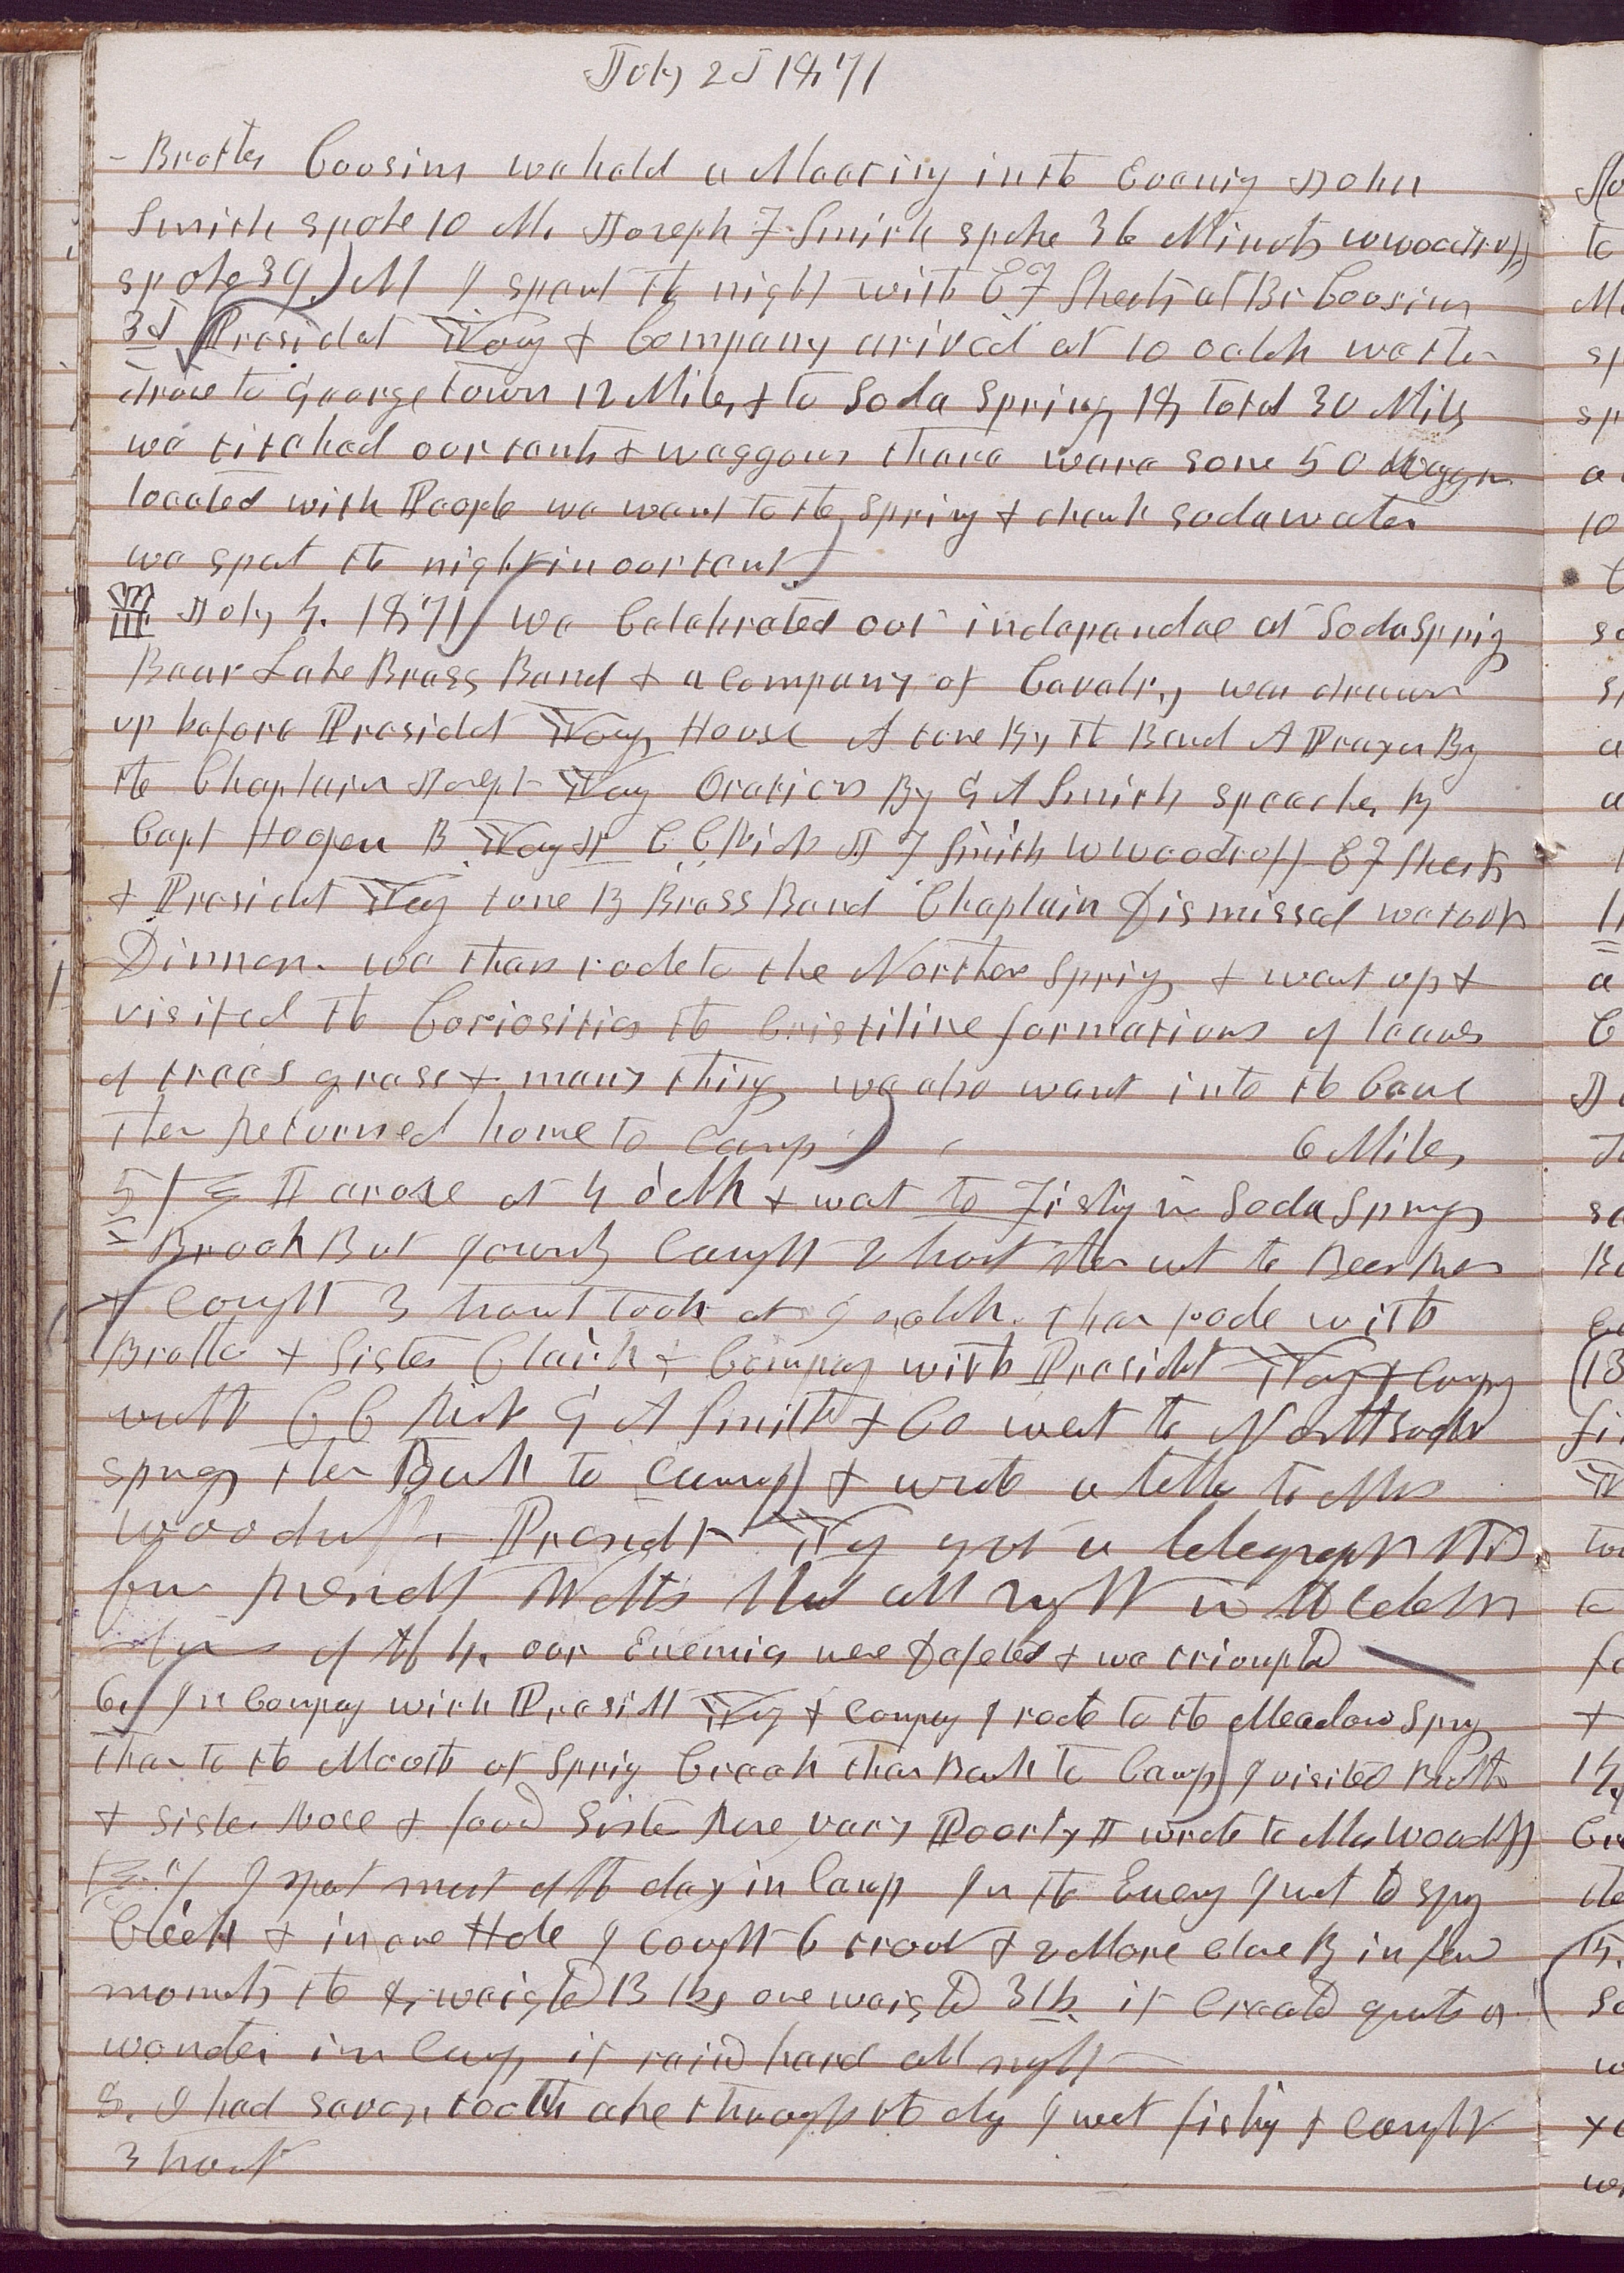 July 2d 1871
- Brother Coosins we held a Meeting in the Evening John
Smith spoke 10 M. Joseph F. Smith spoke 36 Minuts W Woodruff
spoke 39.) M I spent the night with E F Sheets at Br Coosins
3d President Young & Company arived at 10 oclok we then
drove to Georgetown 12 Miles & to Soda Springs 18, total 30 Mils
we pitched our tents & waggons there were some 50 waggons
loaded with People we went to the Spring & drank soda water
we spent the night in our tent
July 4. 1871 We Celebrated our independae at Soda Spring
Bear Lake Brass Band & a company of Cavalry was drawn
up before President Young House A tune By the Band A Prayer By
the Chaplain Joseph Young Oration By G A Smith speaches By
Capt Hooper B Young Jr C C Rich J F Smith W Woodruff E F Sheets
& President Young tune By Brass Band Chaplain Dismissed we took
Dinner. we then rode to the Northern Springs & went up &
visited the Coriosities the Cristiline formations of leaves
of trees grass & many things we also went into the Cave
then Returned home to camp) 6 Miles
5 I arose at 4 oclk & went to Fishing in Soda Springs
Brook But I ownly Caught 2 trout then wt to Bear River
& Caught 3 trout took at 9 oclok. then rode with
Brother & Sister Clark & Company with President Young & Compy
with C C Rich G A Smith & Co went to North soda
springs then Back to Camp) & wrote a letter to Mrs
Woodruff President Young got a telegraph
from President Wells that all right in the Celebra
tion of the 4. our Enemies were Defeted & we trioumpd
6. In Company with President Young & Compay I rode to the Meadow Spring
then to the Mouth of Spring Creek then Back to Camp I visited Brother
& Sister Rose & found Sister Rose very Poorly I wrote to Mrs Woodruff
7. I spent most of the day in Camp In the Evenig I went to Spring
Creek & in one Hole I caught 6 trout & 2 More close By in few
moments the 8, weighed 13 lbs, one weighed 3 lb. it Created quite a
wonder in Camp it raind hard all night
8. I had savere tooth ake through the day I went fishing & caught
3 trout